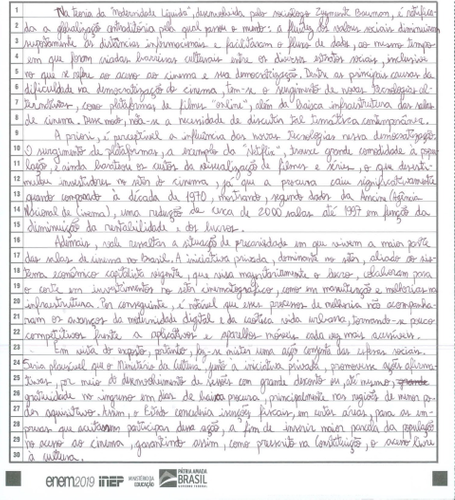 Na teoria da "Modernidade Líquida", desenvolvida pelo sociólogo Zygmunt Bauman, é notifica-
da a globalização contraditória pela qual passa o mundo: a fluidez dos valores sociais diminuiram
supostamente as distâncias informacionais e facilitaram o fluxo de dados, ao mesmo tempo
em que foram criadas barreiras culturais entre os diversos estratos sociais, inclusive
no que se refere ao acesso ao cinema e sua democratização. Dentre as principais causas da
dificuldade na democratização do cinema, tem-se o surgimento de novas tecnologias al-
ternativas, como plataformas de filmes "online", além da baixa infraestrutura das salas
de cinema. Desse modo, nota-se a necessidade de discutir tal temática contemporânea.
A priori, é perceptível a influência das novas tecnologias nessa democratização.
O surgimento de plataformas, a exemplo da "Netflix", trouxe grande comodidade à popu-
lação, e ainda barateou os custos da visualização de filmes e séries, o que desesti-
mulou investidores no setor do cinema, já que a procura caiu significativamente
quando comparado à década de 1970, mostrando, segundo dados da Ancine (Agência
Nacional de Cinema), uma redução de cerca de 2000 salas até 1997 em função da
diminuição da rentabilidade e dos lucros.
Ademais, vale ressaltar a situação de precariedade em que vivem a maior parte
das salas de cinema no Brasil. A iniciativa privada, dominante no setor, aliada ao sis-
tema econômico capitalista vigente, que visa majoritariamente o lucro, colaboram para
o corte em investimentos no setor cinematográfico, como em manutenção e melhorias na
infraestrutura. Por conseguinte, é notável que esses processos de melhoria não acompanha-
ram os avanços da modernidade digital e da caótica vida urbana, tornando-se pouco
competitivos frente a aplicativos e aparelhos móveis cada vez mais acessíveis.
Em vista do exposto, portanto, faz-se mister uma ação conjunta das esferas sociais.
Seria plausível que o Ministério da Cultura, junto à iniciativa privada, promovesse ações afirma-
tivas, por meio do desenvolvimento de sessões com grande desconto ou, até mesmo,
gratuidade no ingresso em dias de baixa procura, principalmente nas regiões de menor po-
der aquisitivo. Assim, o Estado concederia isenções fiscais, em certas áreas, para as em-
presas que aceitassem participar dessa ação, a fim de inserir maior parcela da população
no acesso ao cinema, garantindo assim, como presente na Constituição, o acesso livre
à cultura.
enem2019 inep MINISTÉRIO DA EDUCAÇÃO PÁTRIA AMADA BRASIL GOVERNO FEDERAL